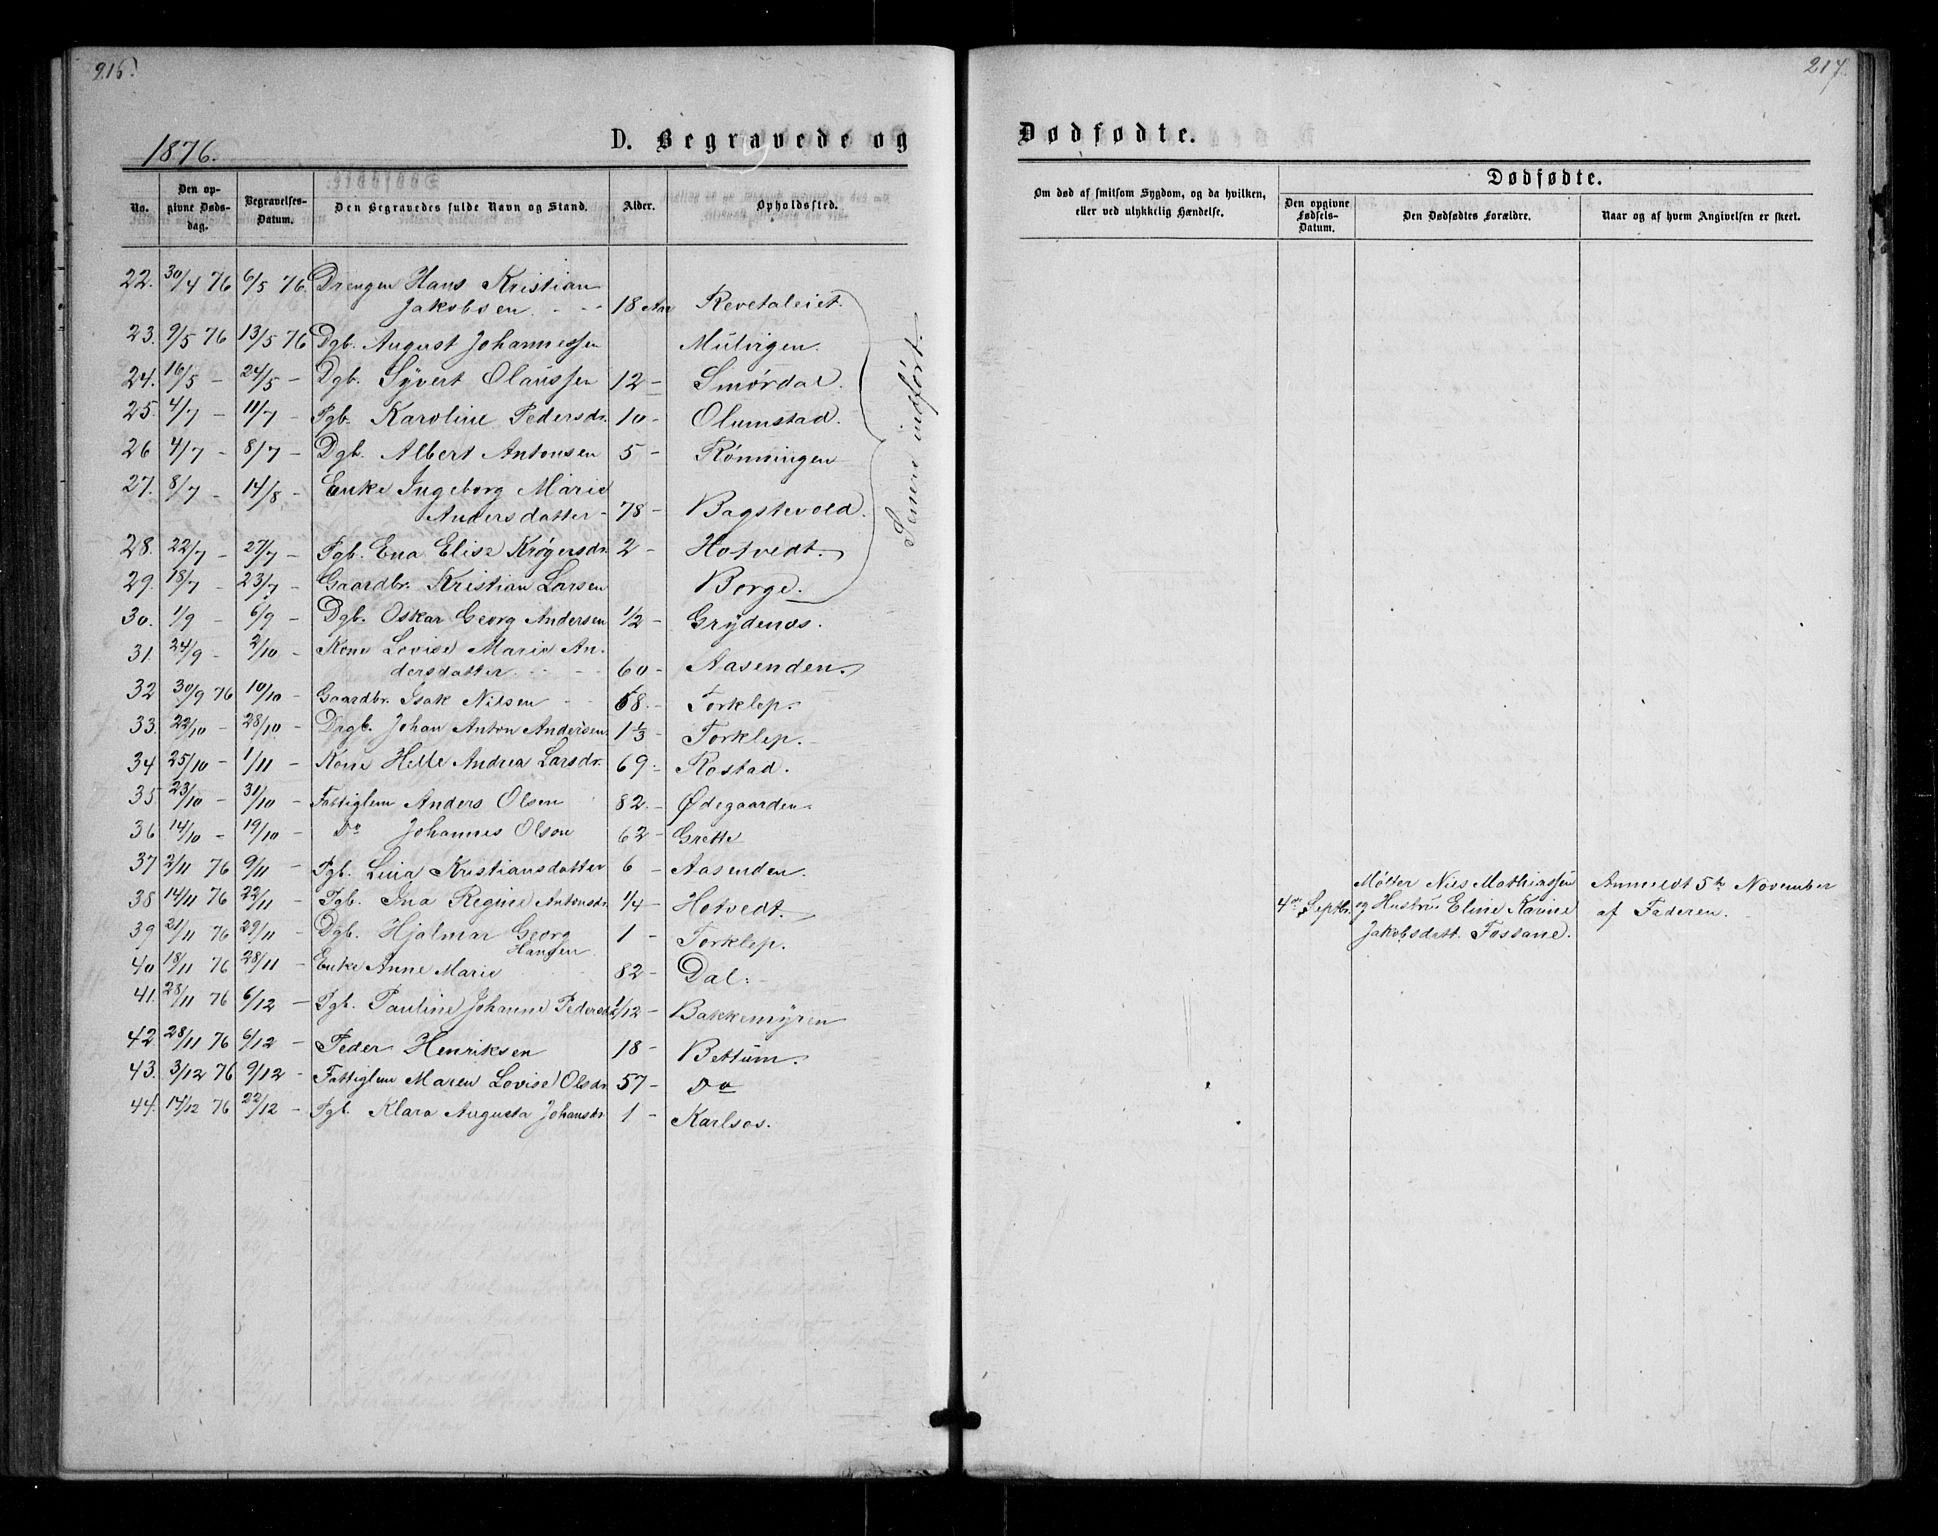 216.
1876.
D. Begravede og
No.
Den opgivne Dødsdag.
Begravelses-Datum.
Den Begravedes fulde Navn og Stand.
Alder.
Opholdssted.
22. 30/4 76 6/5 76. Drengen Hans Kristian
Jakobsen . - - 18 Aar Revetaleiet.
23. 9/5 76 13/5 76 Dgb. August Johannessen Mulvigen.
24. 16/5 - 24/5 - Dgb. Syvert Olaussen 12 - Smørdal.
25. 4/7 - 11/7 - Pgb. Karoline Pedersdr. 10 - Olumstad.
26 4/7 - 8/7 - Dgb. Albert Antonsen 5 - Rønningen
27. 8/7 - 14/8 - Enke Ingeborg Marie
Andersdatter - 78 - Bagstevold.
28. 22/7 - 27/7 - Pgb. Ena Elise Krøgersdr. 2 - Hotvedt.
29. 18/7 - 23/7 - Gaardbr. Kristian Larsen Borge.
Senere indført.
30. 1/9 - 6/9 - Dgb. Oskar Georg Andersen 1/2 - Grydenøs.
31. 24/9 - 2/10 - Kone Lovise Marie An-
dersdatter . - - 60 - Aasenden.
32 30/9 76 10/10 - Gaardbr. Isak Nilsen - 68. - Torklep.
33. 22/10 - 28/10 - Drgb. Johan Anton Andersen. 1 1/3 - Torklep.
34 25/10 - 1/11 - Kone Helle Andrea Larsdr. 69 - Rostad.
35 23/10 - 31/10 - Fattiglem Anders Olsen 82. - Ødegaarden
36 14/10 - 19/10 - Do Johannes Olson 62 - Grette
37 2/11 76 9/11 - Pgb. Lina Kristiansdatter 6 - Aasenden.
38 14/11 76 22/11 - Pgb. Ina Regine Antonsdr. 1/4 - Hotvedt.
39 21/11 76 29/11 - Dgb. Hjalmar Georg
Hansen 1 - Torklep.
40 18/11 76 28/11 - Enke Anne Marie 82 - Dal.
41. 28/11 76 6/12 - Pgb. Pauline Johanne Pedersd. 1/12 - Bakkemyren
42 28/11 76 6/12 - Peder Henriksen 18 - Bettum.
43. 3/12 76 9/12 - Fattiglem Maren Lovise Olsdr. 57 - Do
44. 14/12 76 22/12 - Pgb. Klara Augusta Johansdr. 1 - Karlsøs.
217.
Dødfødte.
Om død af smitsom Sygdom, og da hvilken,
eller ved ulykkelig Hændelse.
Dødfødte.
Den opgivne Fødsels-Datum.
Den Dødfødtes Forældre.
Naar og af hvem Angivelsen er skeet.
Møller Nils Mathiassen Anmeldt 5te November
4de Septbr. og Hustru Eline Kavine af Faderen.
Jakobsdatt. Fossane.